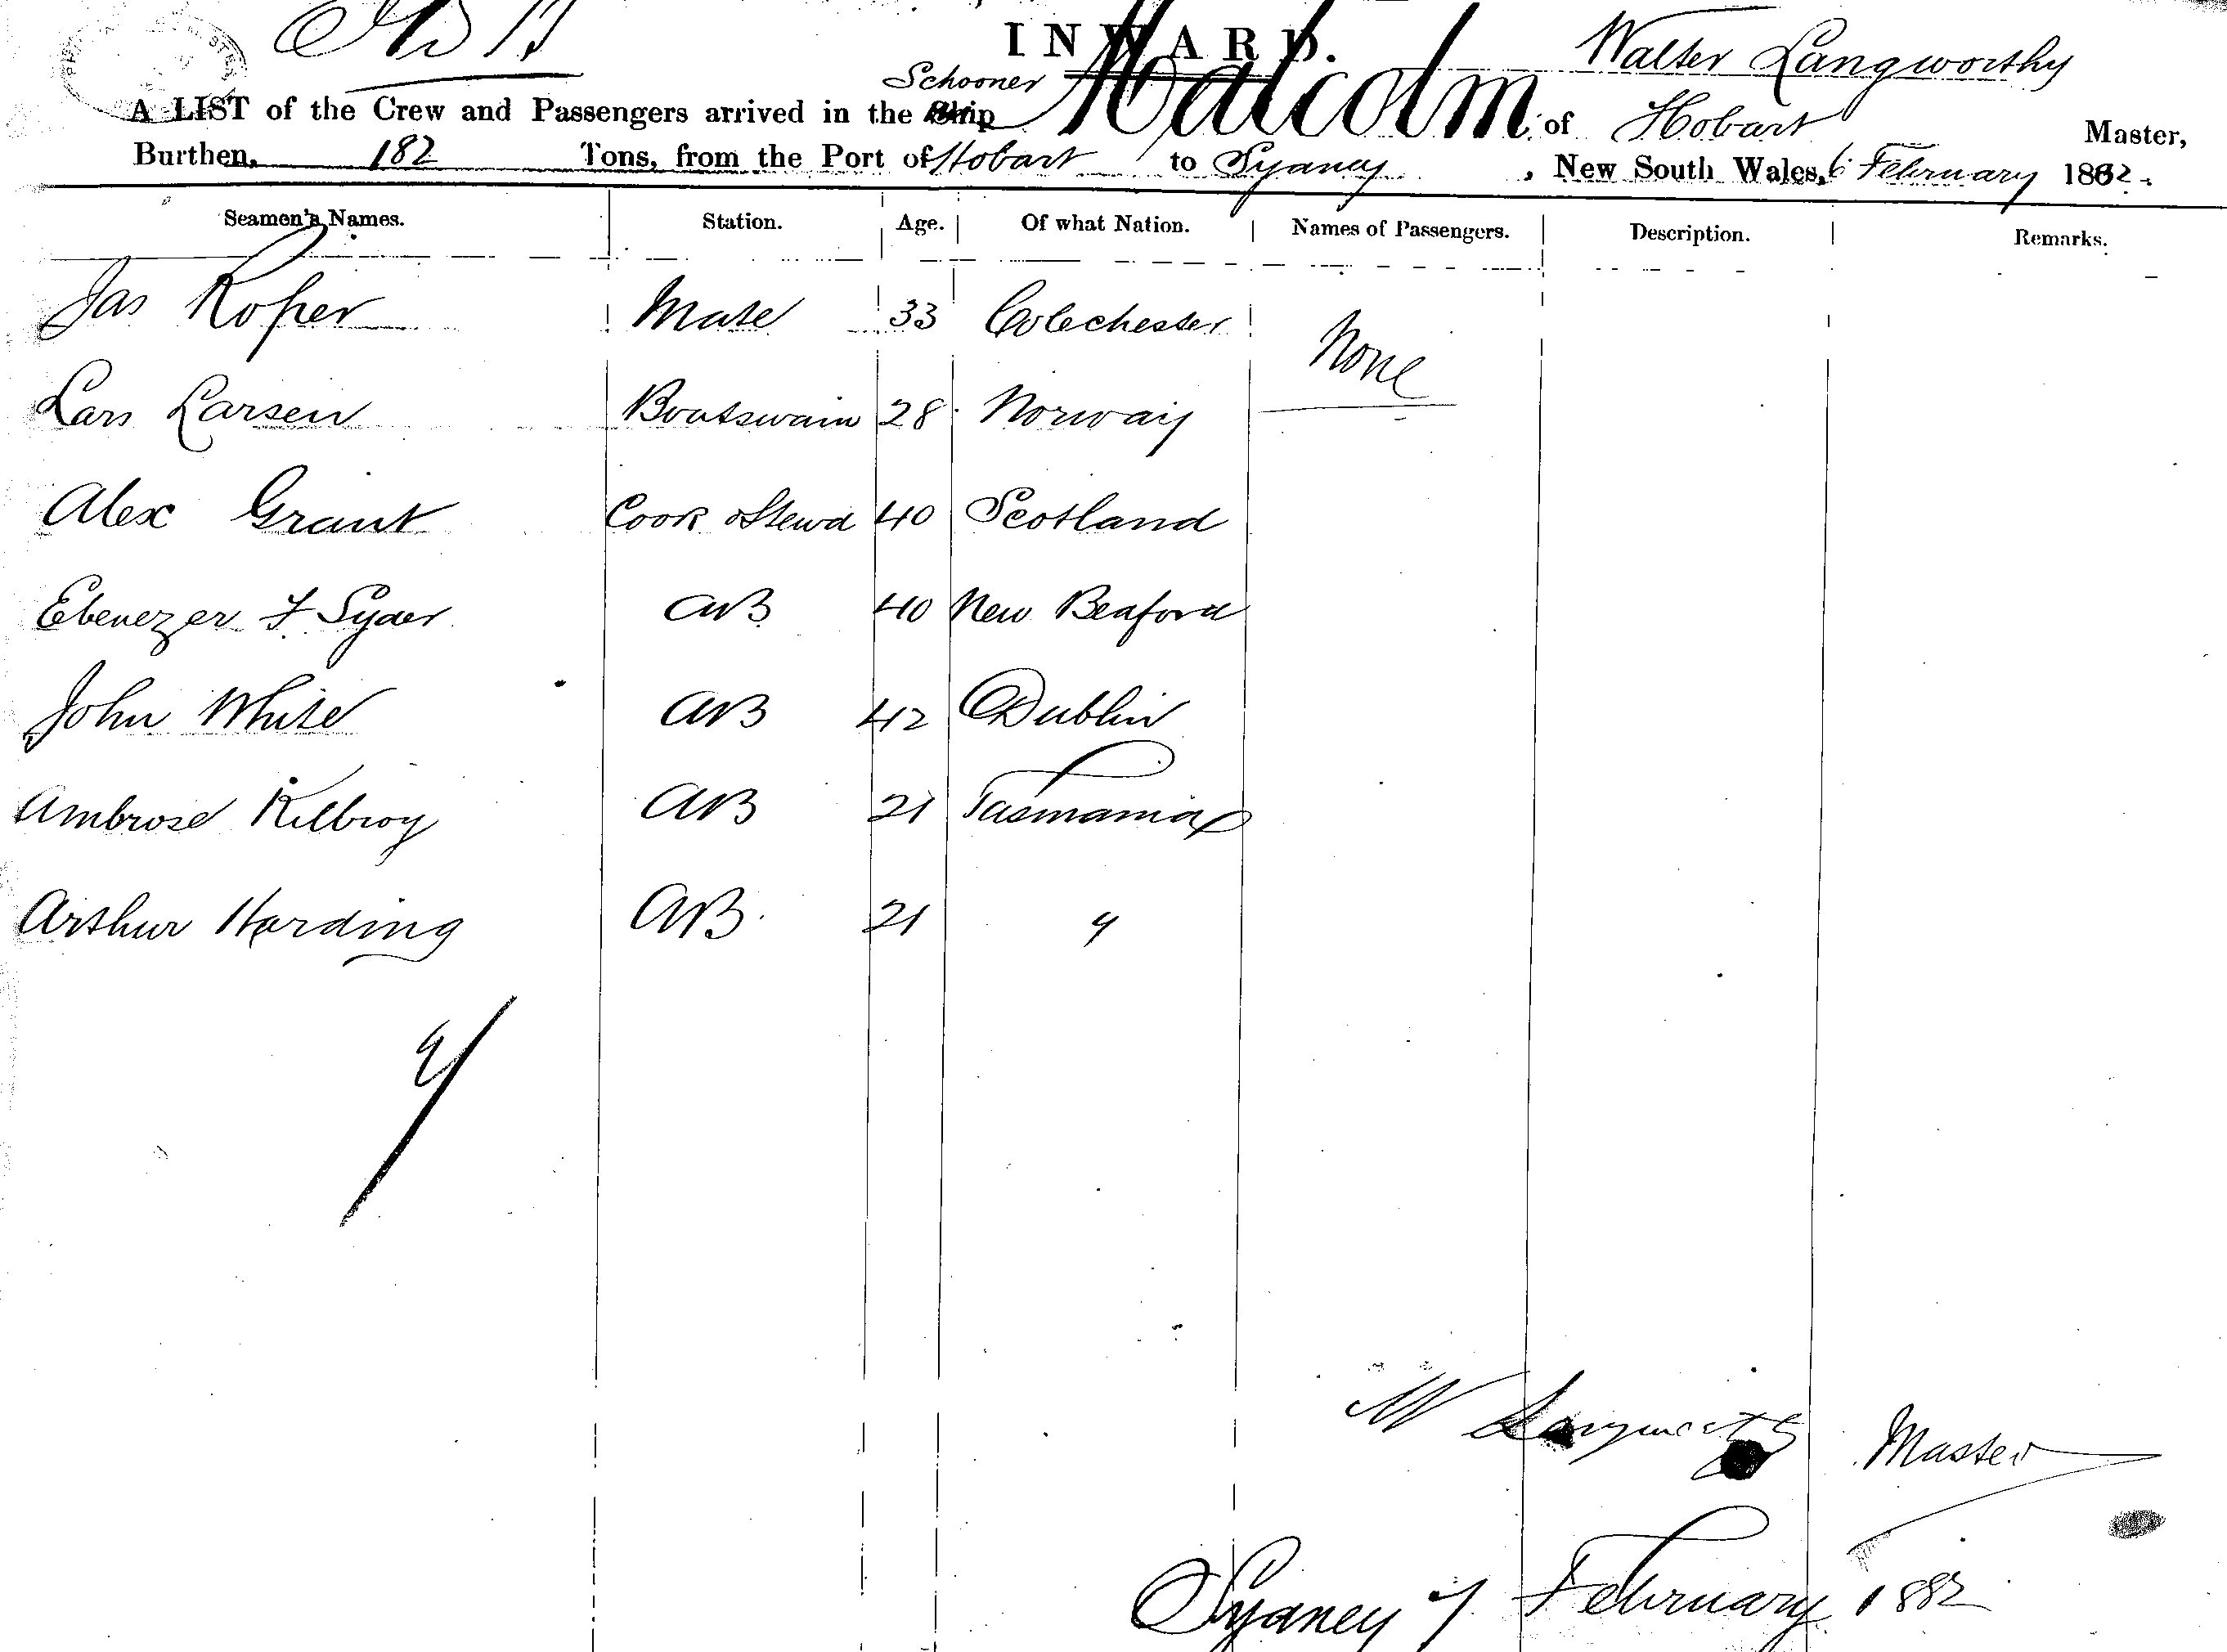 INWARD.
Walter Langworthy
Schooner
A LIST of the Crew and Passengers arrived in the Ship Malcolm of Hobart Master,
Burthen, 182 Tons, from the Port of Hobart to Sydney , New South Wales, 6 February 1882.
Seamen's Names. Station. Age. Of what Nation. Names of Passengers. Description. Remarks.
Jas Roper Mate 33 Colechester None
Lars Larsen Boatswain 28 Norway
Alex Grant Cook & Stewd 40 Scotland
Ebenezer F Syder AB 40 New Bedford
John White AB 42 Dublin
Ambrose Kilbroy AB 21 Tasmania
Arthur Harding AB. 21 "
W Langworthy Master
Sydney 7 February 1882